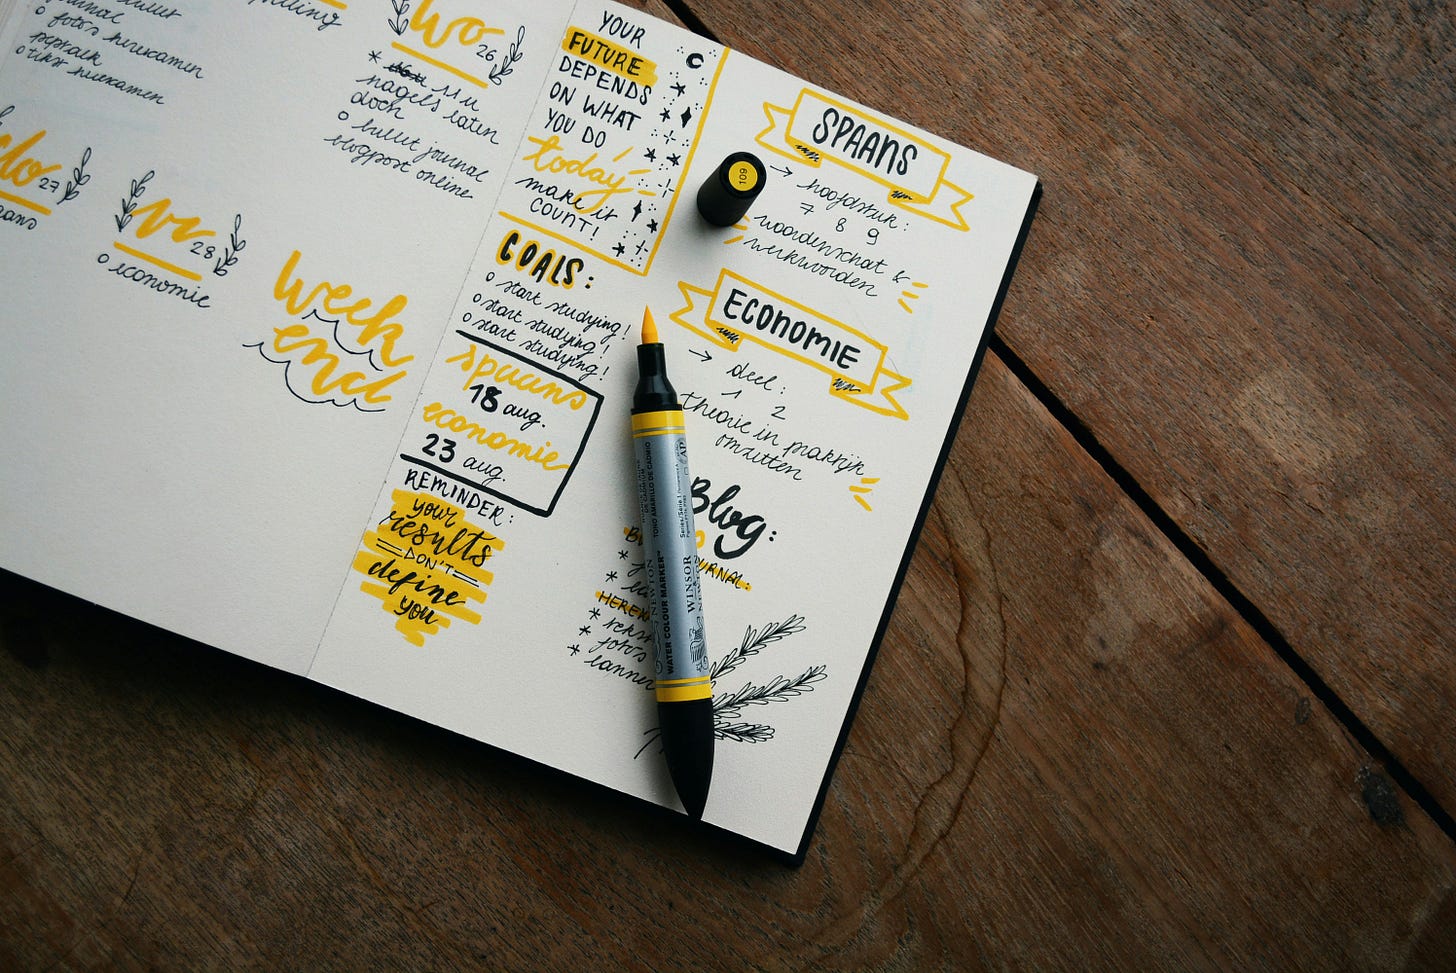 journal
o foto's herexamen
peptalk
o tekst herexamen
WO 26
* 11 u
nagels laten
doen
o bullet journal
blogpost online
do 27
vr 28
o economie
week
end
YOUR
FUTURE
DEPENDS
ON WHAT
YOU DO
today
make it
COUNT!
GOALS:
o start studying!
o start studying!
o start studying!
spaans
18 aug.
economie
23 aug.
REMINDER:
your
results
DON'T
define
you
SPAANS
→ hoofdstuk:
7 8 9
woordenschat &
werkwoorden
109
ECONOMIE
→ deel:
1 2
theorie in praktijk
omzetten
Blog:
JOURNAL:
HEREX
* tekst
* foto's
* banner
WINSOR
NEWTON
WATER COLOUR MARKER™
TONO AMARILLO DE CADMIO